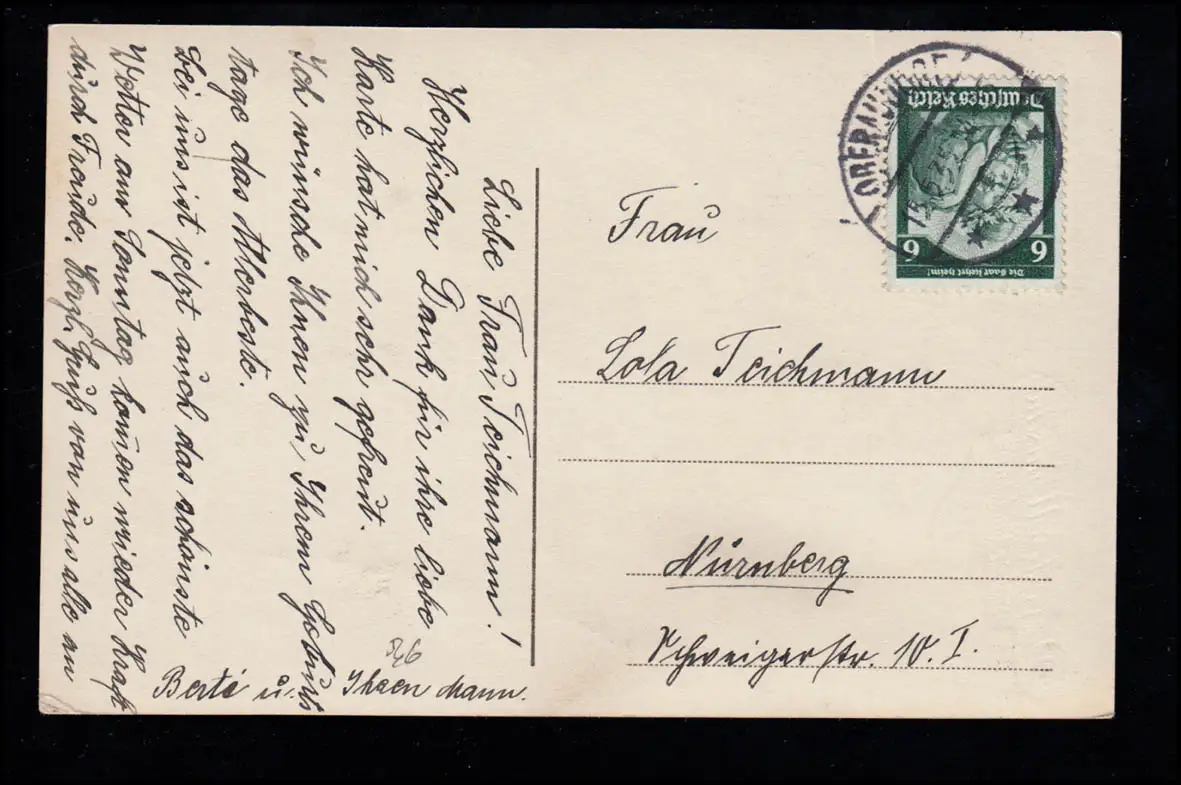 Liebe Frau Teichmann!
Herzlichen Dank für ihre liebe
Karte hat mich sehr gefreut.
Ich wünsche Ihnen zu Ihren Geburts
tage das Allerbeste.
Bei uns ist jetzt auch das schönste
Wetter am Sonntag komen wieder Kraft
durch Freude. Herzl. Gruß von uns alle an
Berti u. Ihren Mann.
346
Frau
Lola Teichmann
Nürnberg
Schweigerstr. 10. I.
Deutsches Reich
6 6
Die Saar kehrt heim!